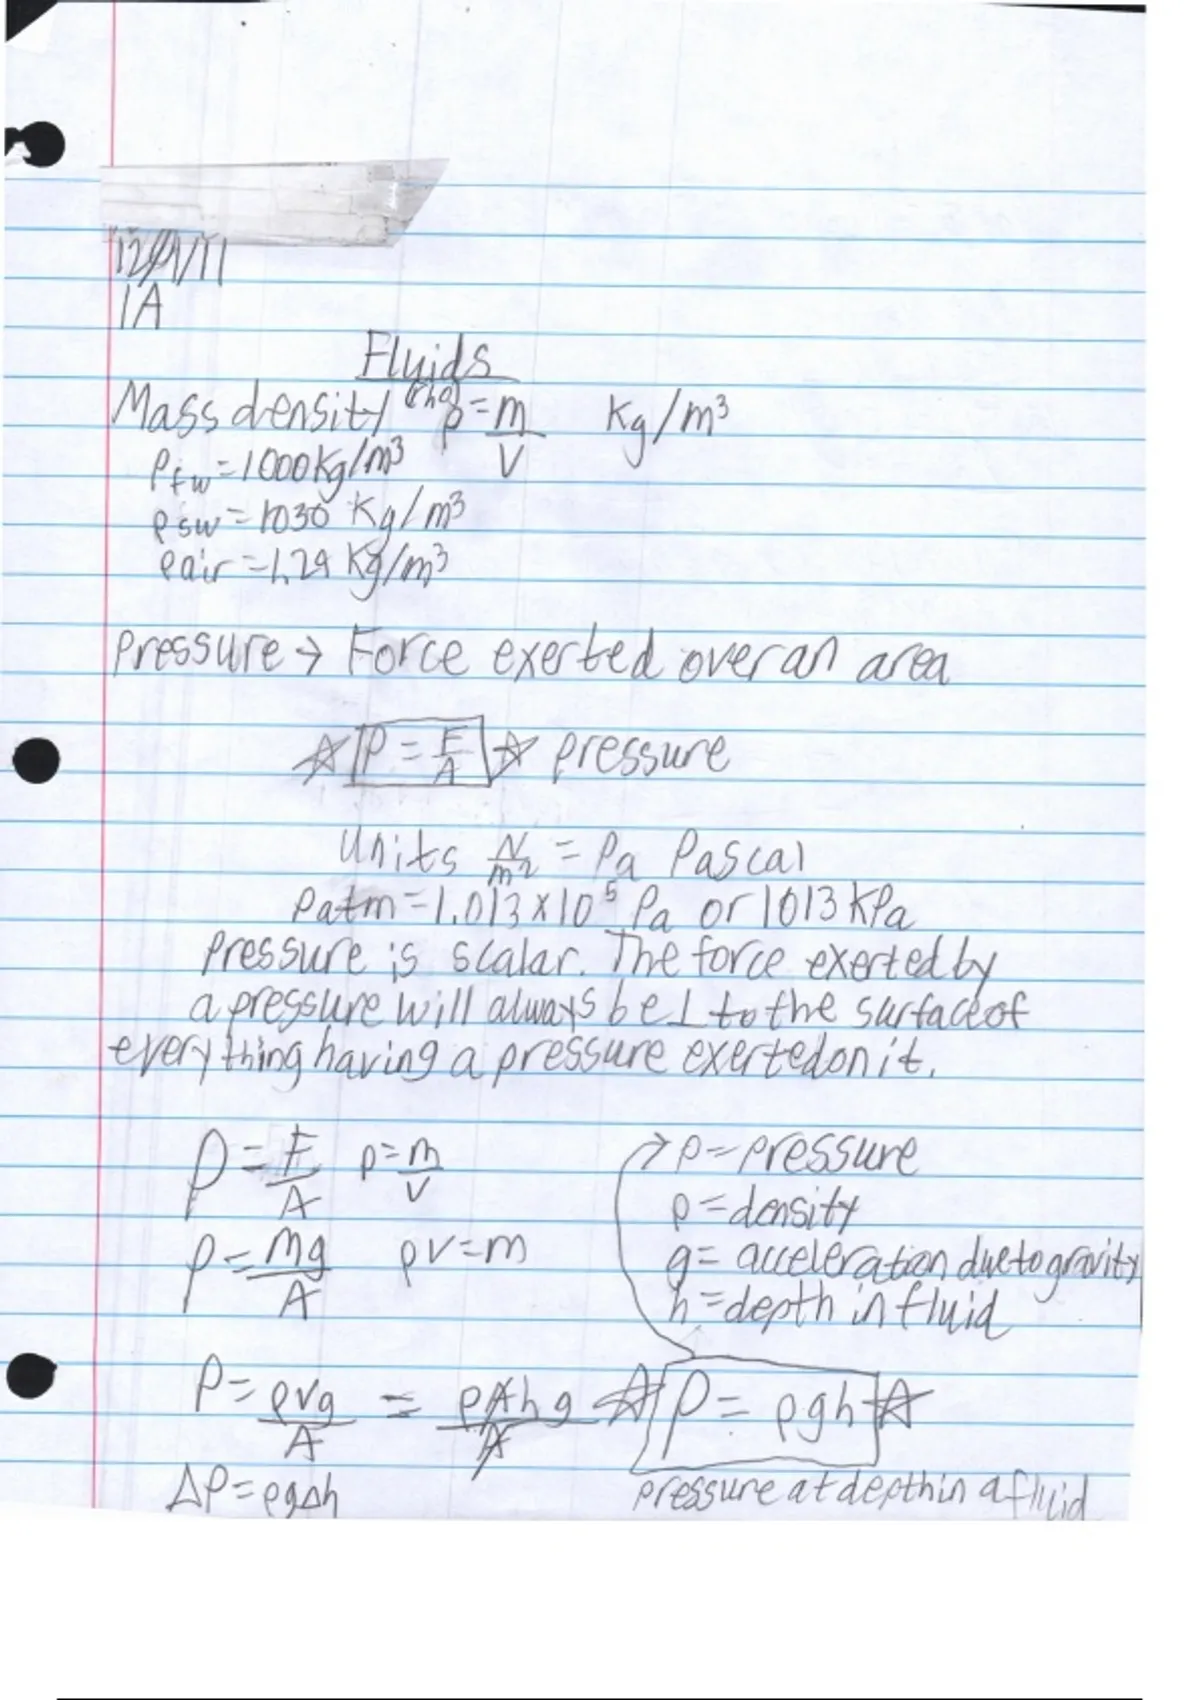 1A
Fluids
Mass density (rho) ρ = m/V kg/m³
ρfw = 1000 kg/m³
ρsw = 1030 kg/m³
ρair = 1.29 kg/m³
Pressure → Force exerted over an area
☆ P = F/A ☆ pressure
Units N/m² = Pa Pascal
Patm = 1.013 x 10⁵ Pa or 1013 kPa
Pressure is scalar. The force exerted by
a pressure will always be ⊥ to the surface of
everything having a pressure exerted on it.
P = F/A ρ = m/V → P = pressure
ρ = density
P = mg/A ρV = m g = acceleration due to gravity
h = depth in fluid
P = ρVg/A = ρAhg/A ☆ P = ρgh ☆
ΔP = ρgΔh pressure at depth in a fluid